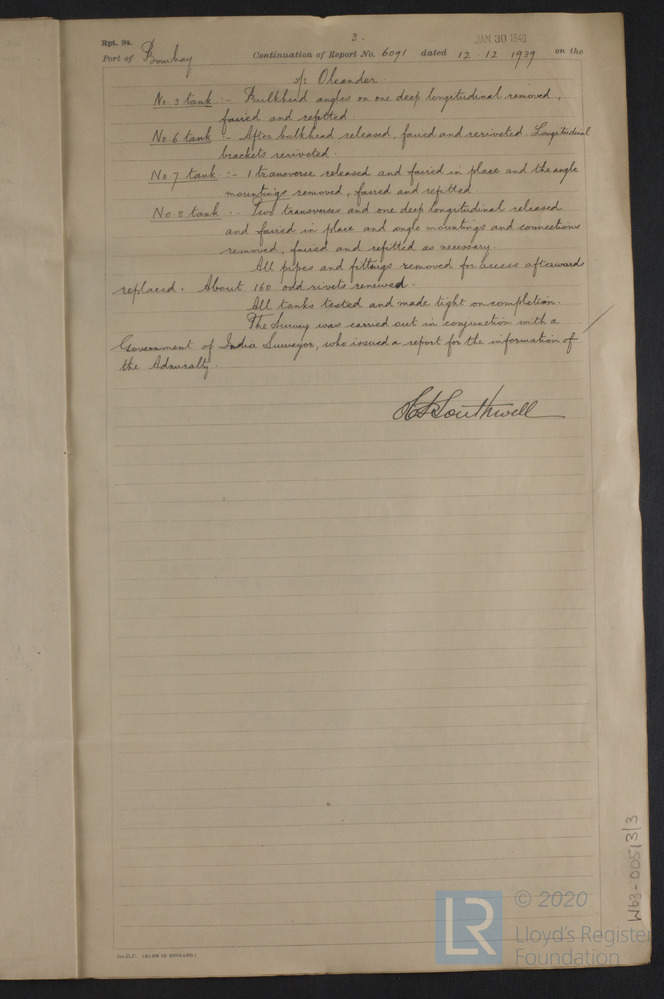 Rpt. 9a.
3.
JAN 30 1940
Port of Bombay Continuation of Report No. 6091 dated 12 · 12 · 1939 on the
s/s Oleander.
No. 3 tank :- Bulkhead angles on one deep longitudinal removed,
faired and refitted.
No. 6 tank :- After bulkhead released, faired and reriveted. Longitudinal
brackets reriveted.
No. 7 tank :- 1 transverse released and faired in place and the angle
mountings removed, faired and refitted.
No. 8 tank :- Two transverses and one deep longitudinal released
and faired in place and angle mountings and connections
removed, faired and refitted as necessary.
All pipes and fittings removed for access afterwards
replaced. About 160 odd rivets renewed.
All tanks tested and made tight on completion.
The Survey was carried out in conjunction with a
Government of India Surveyor, who issued a report for the information of
the Admiralty.
Southwell
W63-0051 3/3
(MADE IN ENGLAND.)
LR
© 2020
Lloyd's Register
Foundation